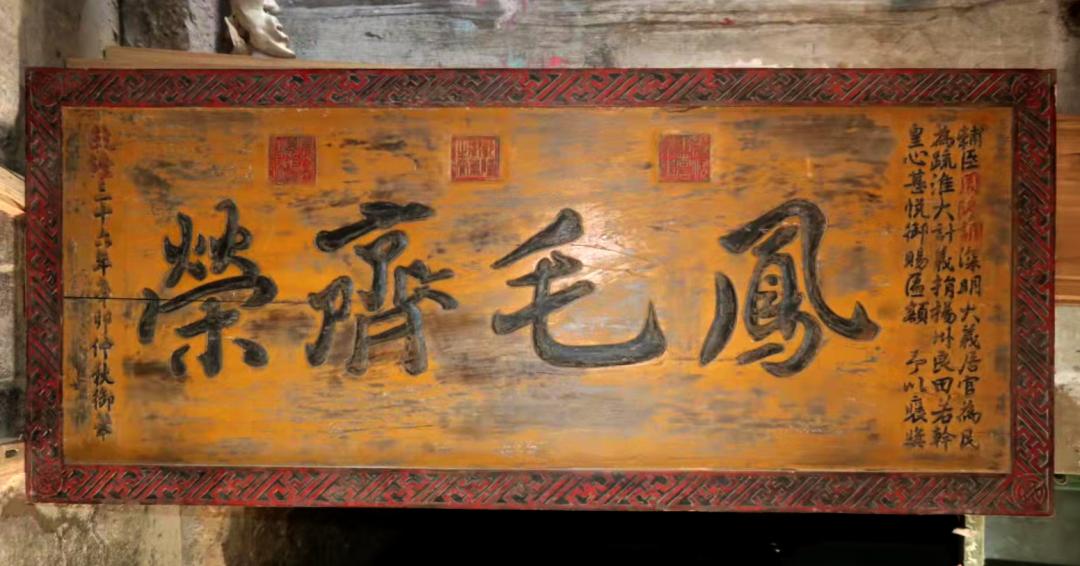 輔臣深明大義居官為民
為疏淮大計義捐揚州良田若幹
皇心甚悅御賜匾額 予以褒獎
鳳毛齊榮
乾隆三十六年辛卯仲秋御筆